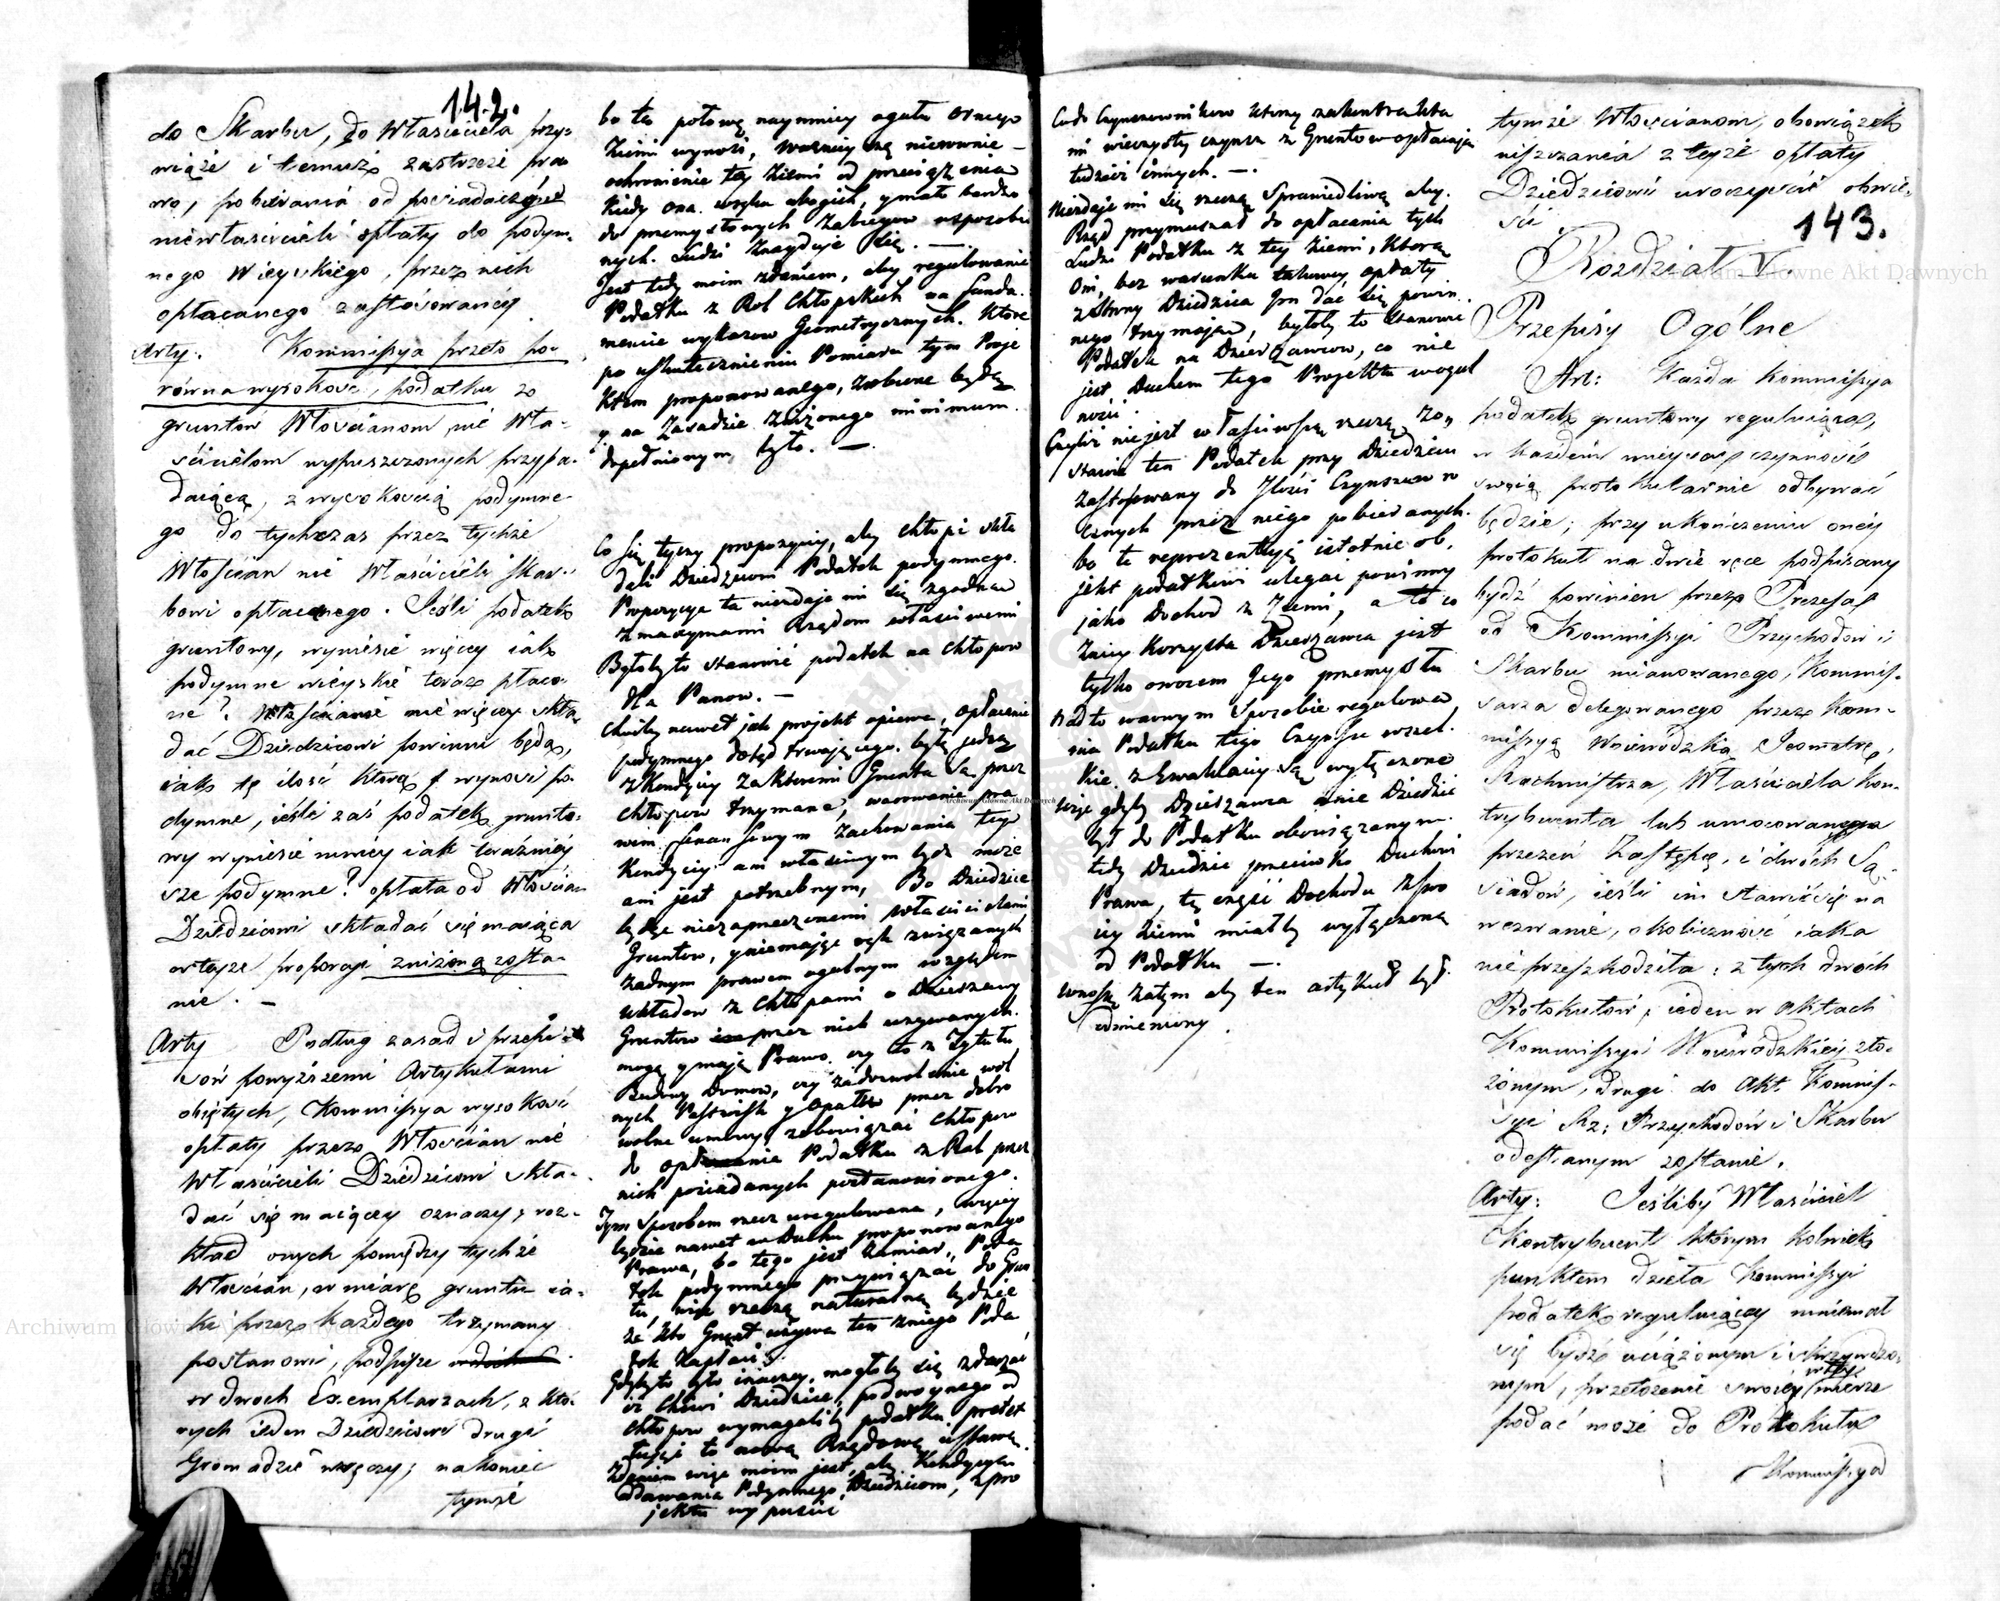 142.
do Skarbu, do Właściciela przy-
wiąże i temuż zastrzeże pra
wo, pobierania od posiadaczów
niewłaścicieli opłaty do podym-
nego Wieyskiego, przez nich
opłacanego zastosowaney
Arty. Kommissya przeto po-
równa wysokość, podatku z
gruntow Włościanom nie Wła-
ścicielom wypuszczonych przypa-
daiącą, z wysokością podymne-
go do tychczas przez tychże
Włościan nie Właścicieli Skar-
bowi opłacanego. Jeśli podatek
gruntowy, wyniesie więcey iak
podymne wieyskie teraz płaco-
ne? Włościanie nie więcey skła-
dać Dziedzicowi powinni będą,
iak tę ilość którą wynosi po-
dymne, ieśli zaś podatek grunto-
wy wyniesie mniey iak teraźniey
sze podymne? opłata od Włościan
Dziedzicowi składać się maiąca
w teyże proporcyi zniżoną zosta-
nie. –
Arty Podług zasad i przepi-
sów powyższemi Artykułami
obiętych, Kommissya wysokość
opłaty przez Włościan nie
Właścicieli Dziedzicowi skła-
dać się maiącey oznaczy; roz-
kład onych pomiędzy tychże
Włościan, w miarę gruntu ia-
ki przez każdego trzymany
postanowi, podpisze
w dwóch Exemplarzach, z któ-
rych ieden Dziedzicowi drugi
Gromadzie wręczy; nakoniec
tymże
bo ta połowę naymniey ogułu ornego
Ziemi wynosi, ważniey są nierownie –
ochronienie tey Ziemi od przeciążenia
Kiedy ona w ręku ubogich, y mało bardzo
do przemysłowych zabiegow usposobio
nych Ludzi znayduje się. —
Jest tedy moim zdaniem, aby regulowanie
Podatku z Rol Chłopskich na funda-
mencie wykazow Geometrycznych. Które
po uskutecznieniu Pomiaru tym Proje
ktem proponowanego, zrobione będą
y na Zasadzie zniżonego minimum
dopełnionym było. —
Co się tyczy propozycyi, aby chłopi skła
dali Dziedzicowi Podatek podymnego.
Propozycya ta niezdaje mi się zgodna
z maxymami Rządom właściwemi
Byłoby to stanowić podatek na chłopow
dla Panow. –
Choćby nawet jak projekt opiewa, opłacanie
podymnego dotąd trwającego było jedną
z Kondycyi za któremi Grunta są przez
chłopow trzymane, warowanie pra
wem finansowym zachowania tey
Kondycyi ani właściwym bydź może
ani jest potrzebnym, Bo Dziedzice
będąc niezaprzeczonemi właścicielami
Gruntow, y niemając rąk związanych
żadnym prawem ogulnym względem
układow z Chłopami o Dzierżawy
Gruntow przez nich używanych.
mogą y mają Prawo czy to z tytułu
Budowy Domow, czy za dozwolenie wol
nych Pastwisk y Opału przez dobro
wolne umowy zobowiązać chłopow
do opłacania Podatku z Rol przez
nich posiadanych postanowionego.
Tym sposobem rzecz uregulowana, lepiey
będzie nawet w duchu proponowanego
Prawa, bo tego jest zamiar, Poda
tek podymnego przywiązać do Grun
tu, więc rzeczą naturalną będzie
że kto Grunt używa ten z niego Poda
tek zapłaci.
Gdyby to było inaczey, mogłoby się zdarzać
iż chciwi Dziedzice, podwoynego od
chłopow wymagaliby podatku protex
tując to nową Rządową ustawą.
Zdaniem więc moim jest, aby Kondycyą
oddawania Podymnego Dziedzicom, z pro
jektu wypuścić
Co do Czynszownikow którzy za kontrakta
mi wieczystey czynsz z Gruntow opłacają
tudzież innych. –
Niezdaje mi się rzeczą Sprawiedliwą aby.
Rząd przymuszał do opłacania tych
Ludzi Podatku z tey Ziemi, którą
Oni, bez warunku takowey opłaty
z strony Dziedzica Jm dać się powin
nego trzymają, byłoby to stanowić
Podatek na Dzierżawcow, co nie
jest Duchem tego Projektu w ogul
ności.
Czyliż nie jest właściwszą rzeczą zo-
stawić ten Podatek przy Dziedzicu
zastosowany do Ilości Czynszow ro
cznych przez niego pobieranych.
bo te reprezentują istotnie ob.
jekt podatkowi ulegać powinny
jako Dochod z Ziemi, a to co
z niey korzysta Dzierżawca jest
tylko owocem Jego przemysłu
Nadto warownym sposobie regulowa
nia Podatku tego Czynsze wszel.
kie z Ewaluacyi są wyłączone
więc gdyby Dzierżawca a nie Dziedzic
był do Podatku obowiązanym.
tedy Dziedzic przeciwko Duchowi
Prawa, tę część Dochodu z swo
iey Ziemi miałby wyłączoną
od Podatku —.
Wnoszę zatym aby ten artykuł był
odmieniony.
tymże Włościanom, obowiązek
uiszczania z teyże opłaty
Dziedzicowi uroczyście obwie-
ści.
143.
Rozdział V.
Przepisy Ogólne
Art: Każda Kommissya
podatek gruntowy reguluiąca,
w każdem mieyscu czynność
swoią protokularnie odbywać
będzie; przy ukończeniu oney
protokuł na dwie ręce podpisany
bydź powinien przez Prezesa
od Kommissyi Przychodów i
Skarbu mianowanego, Kommis-
sarza delegowanego przez Kom-
missyą Woiewódzką Jeometrę,
Rachmistrza, Właściciela kon-
trybuenta lub umocowanego
przezeń Zastępcę, i dwóch Są-
siadów, ieśli im stawić się na
wezwanie, okoliczność iaka
nie przeszkodziła: z tych dwóch
Protokułów, ieden w aktach
Kommissyi Woiewódzkiey zło-
żonym, drugi do Akt Kommis-
syi Rz: Przychodów i Skarbu
odesłanym zostanie.
Arty: Jeśliby Właściciel
Kontrybuent którym kolwiek
punktem dzieła Kommissyi
podatek reguluiącey mniemał
się bydź uciążonym i skrzywdzo-
nym, przełożenie swoie w tey mierze
podać może do Protokułu
Kommissya